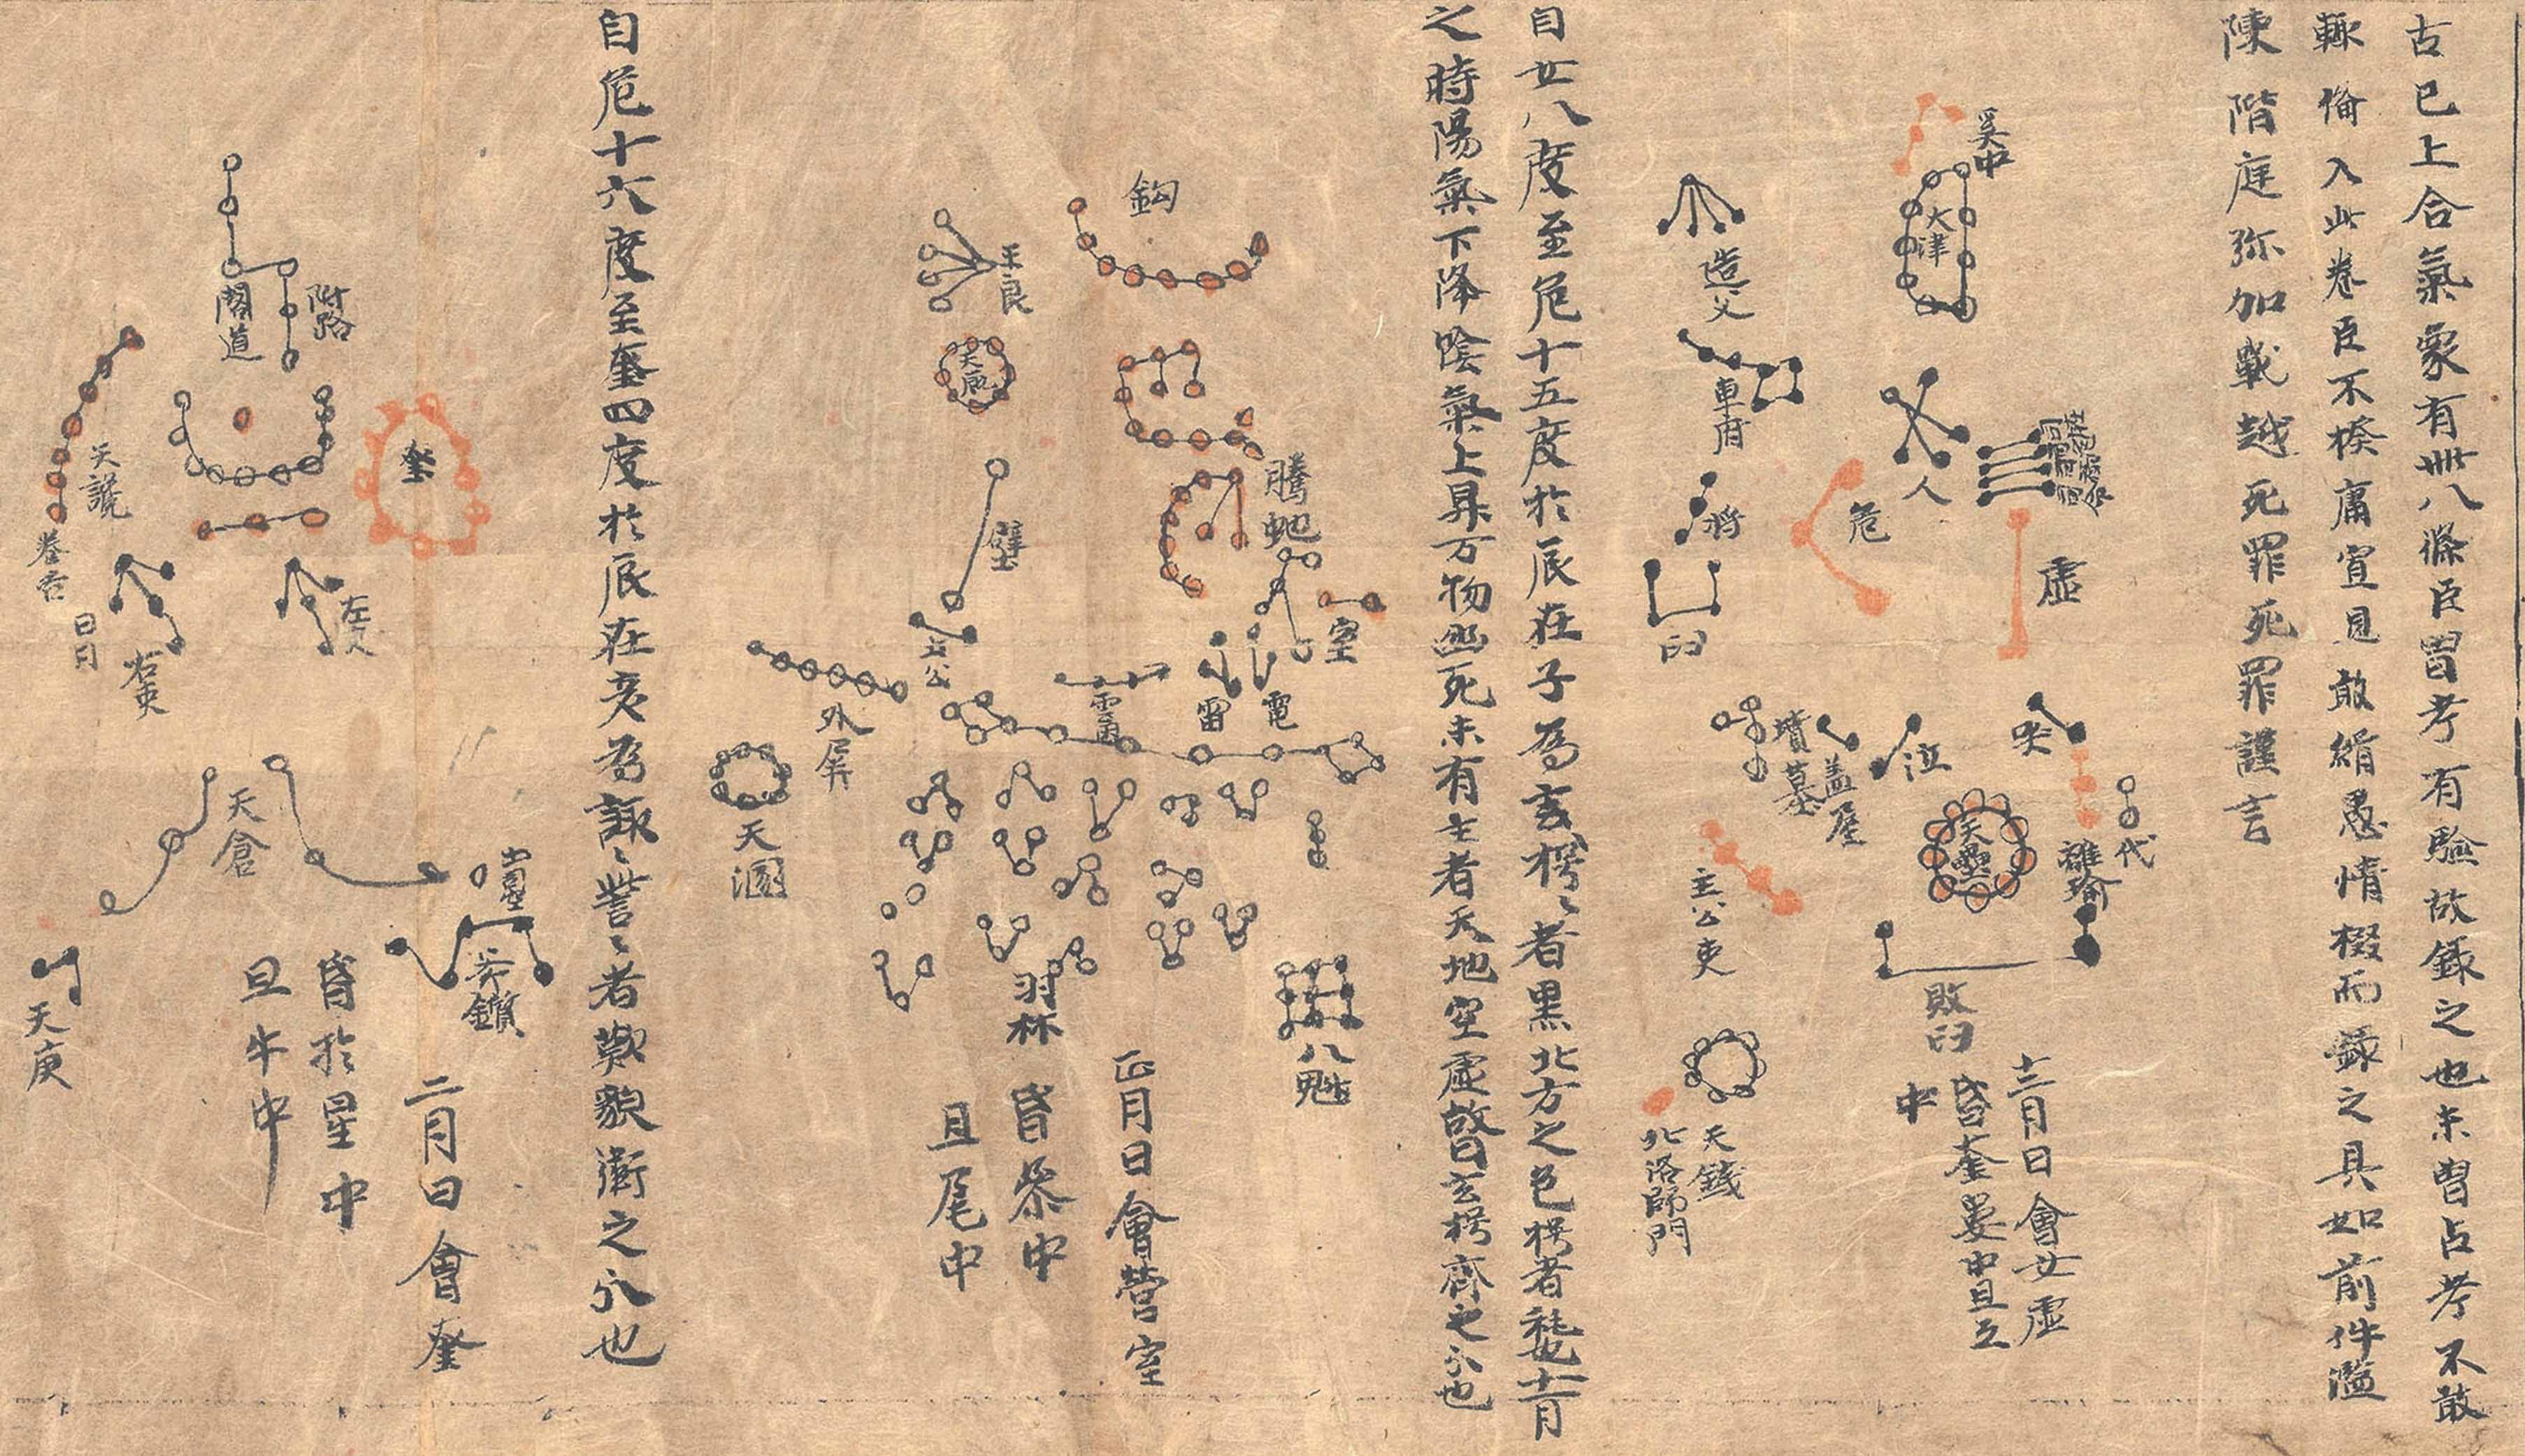 古已上合氣象有卌八條臣曽考有驗故錄之也未曽占考不敢
輒俻入此卷臣不揆庸冝見敢緝愚情掇而錄之具如前件濫
陳階庭弥加戰越死罪死罪謹言
奚仲
天津
造父
車府
人
虛
危
杵
臼
哭
泣
墳墓
盖屋
代
離瑜
天壘
敗臼
主公吏
天錢
北洛師門
十二月日會女虛
昏奎婁中旦互
中
自女八度至危十五度於辰在子為玄枵〻者黒北方之色枵者耗也十一月
之時陽氣下降陰氣上昇万物幽死未有主者天地空虛故曰玄枵齊之分也
鈎
王良
天厩
騰虵
壁
室
土公
雷
電
雲雨
外屏
天溷
羽林
八魁
正月日會營室
昏参中
旦尾中
自危十六度至奎四度於辰在亥為諏〻訾〻者歎貌衛之分也
附路
閣道
奎
天讒
卷舌
日月
左更
右更
天倉
土司空
斧鑕
天庾
二月日會奎
昏於星中
旦牛中